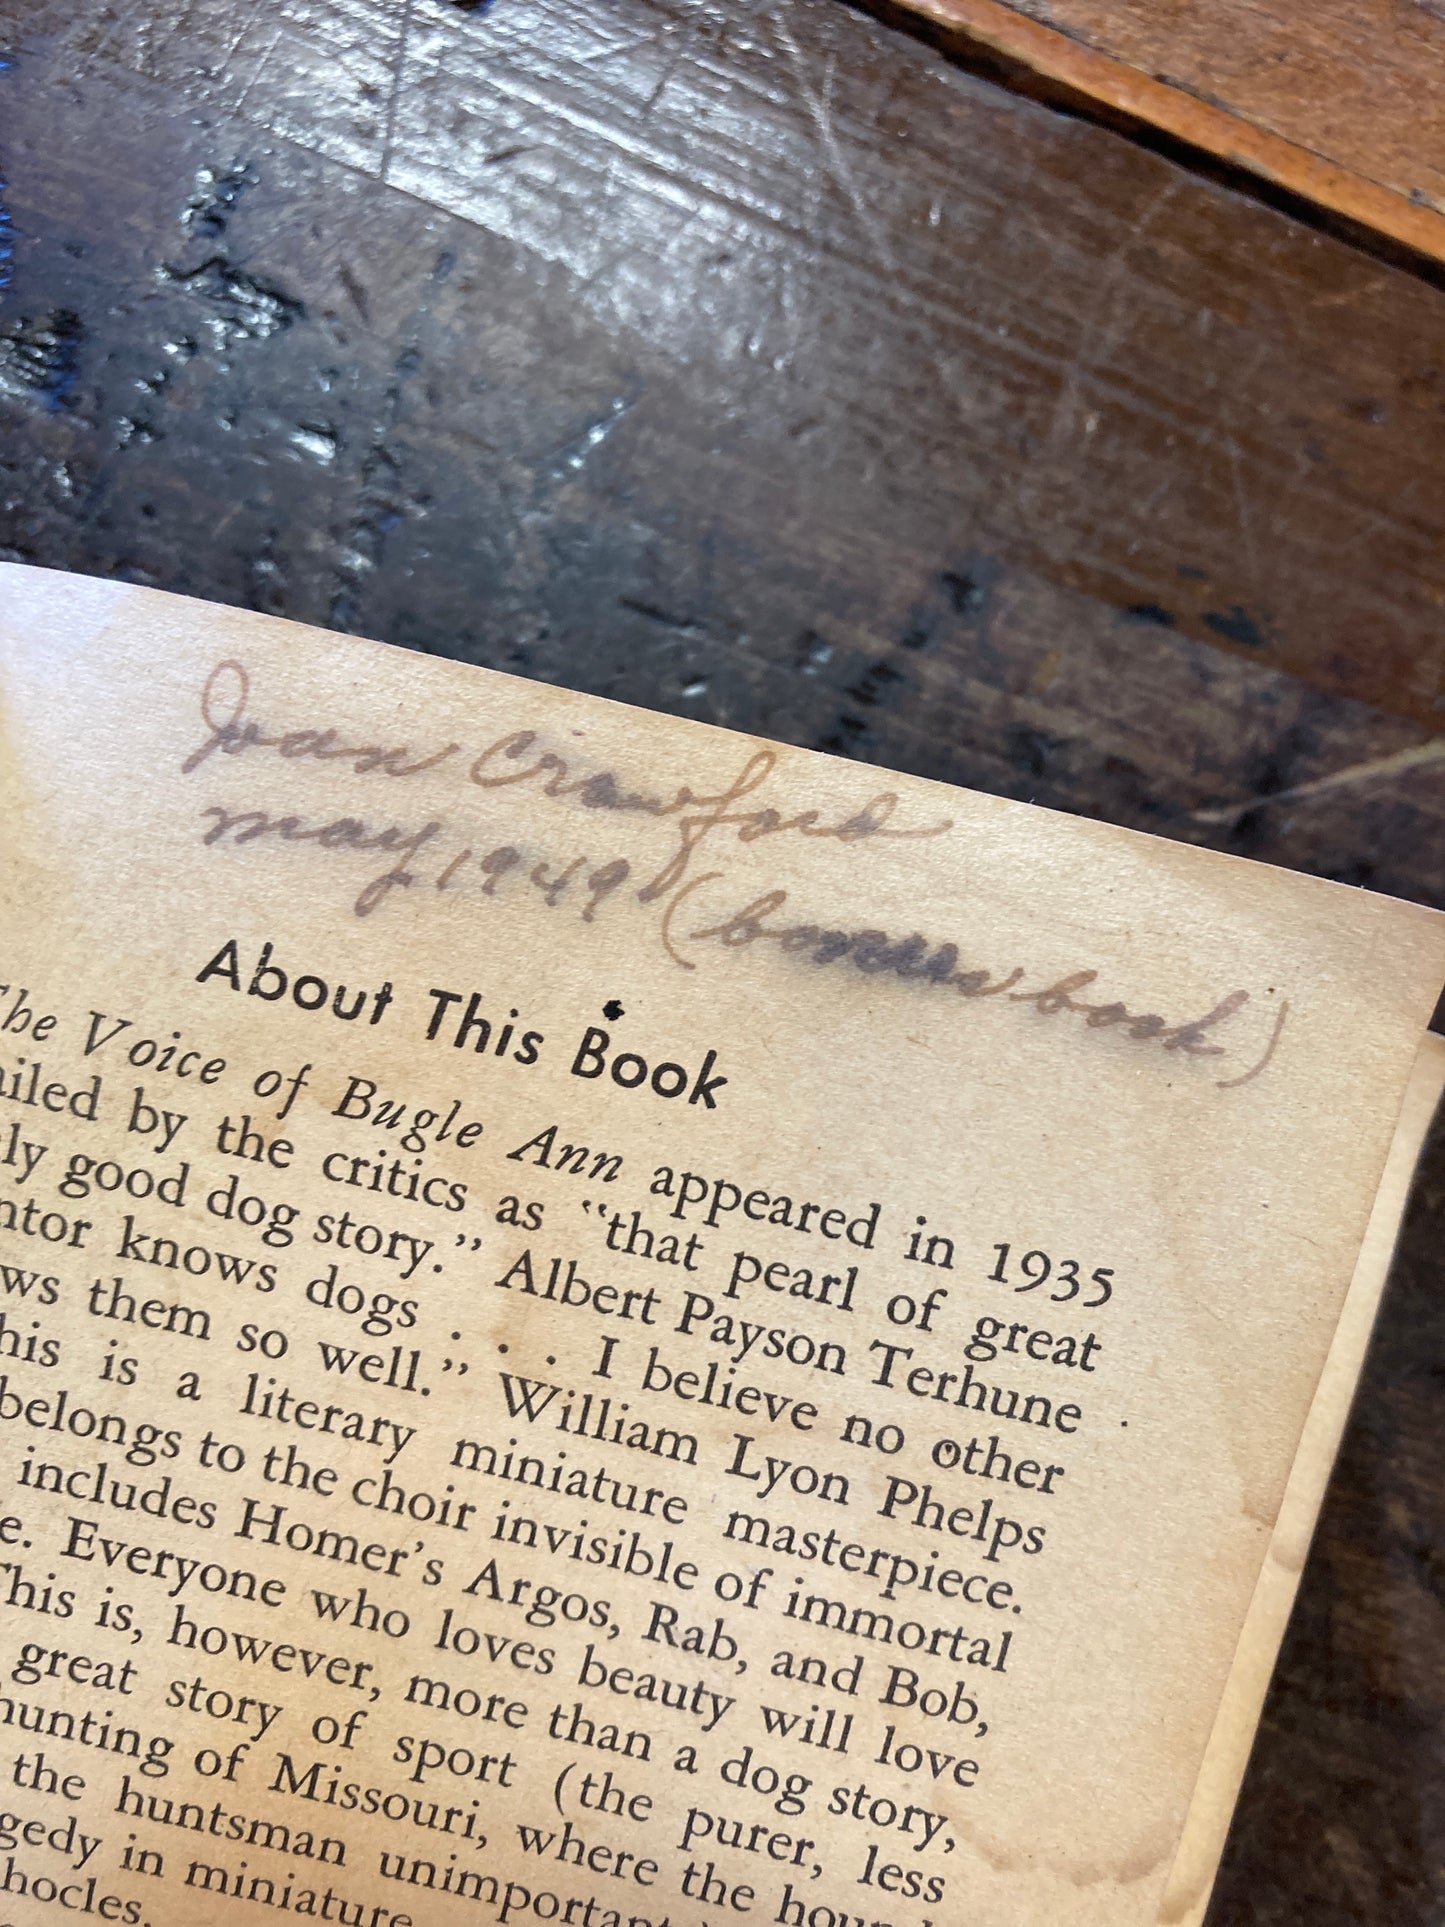 Joan Crawford
May 1949 (bonus book)
About This Book
The Voice of Bugle Ann appeared in 1935
ailed by the critics as “that pearl of great
ly good dog story.” Albert Payson Terhune
ntor knows dogs . . . I believe no other
ws them so well.” William Lyon Phelps
his is a literary miniature masterpiece.
belongs to the choir invisible of immortal
includes Homer’s Argos, Rab, and Bob,
e. Everyone who loves beauty will love
This is, however, more than a dog story,
great story of sport (the purer, less
hunting of Missouri, where the hound
the huntsman unimportant)
gedy in miniature
hocles.